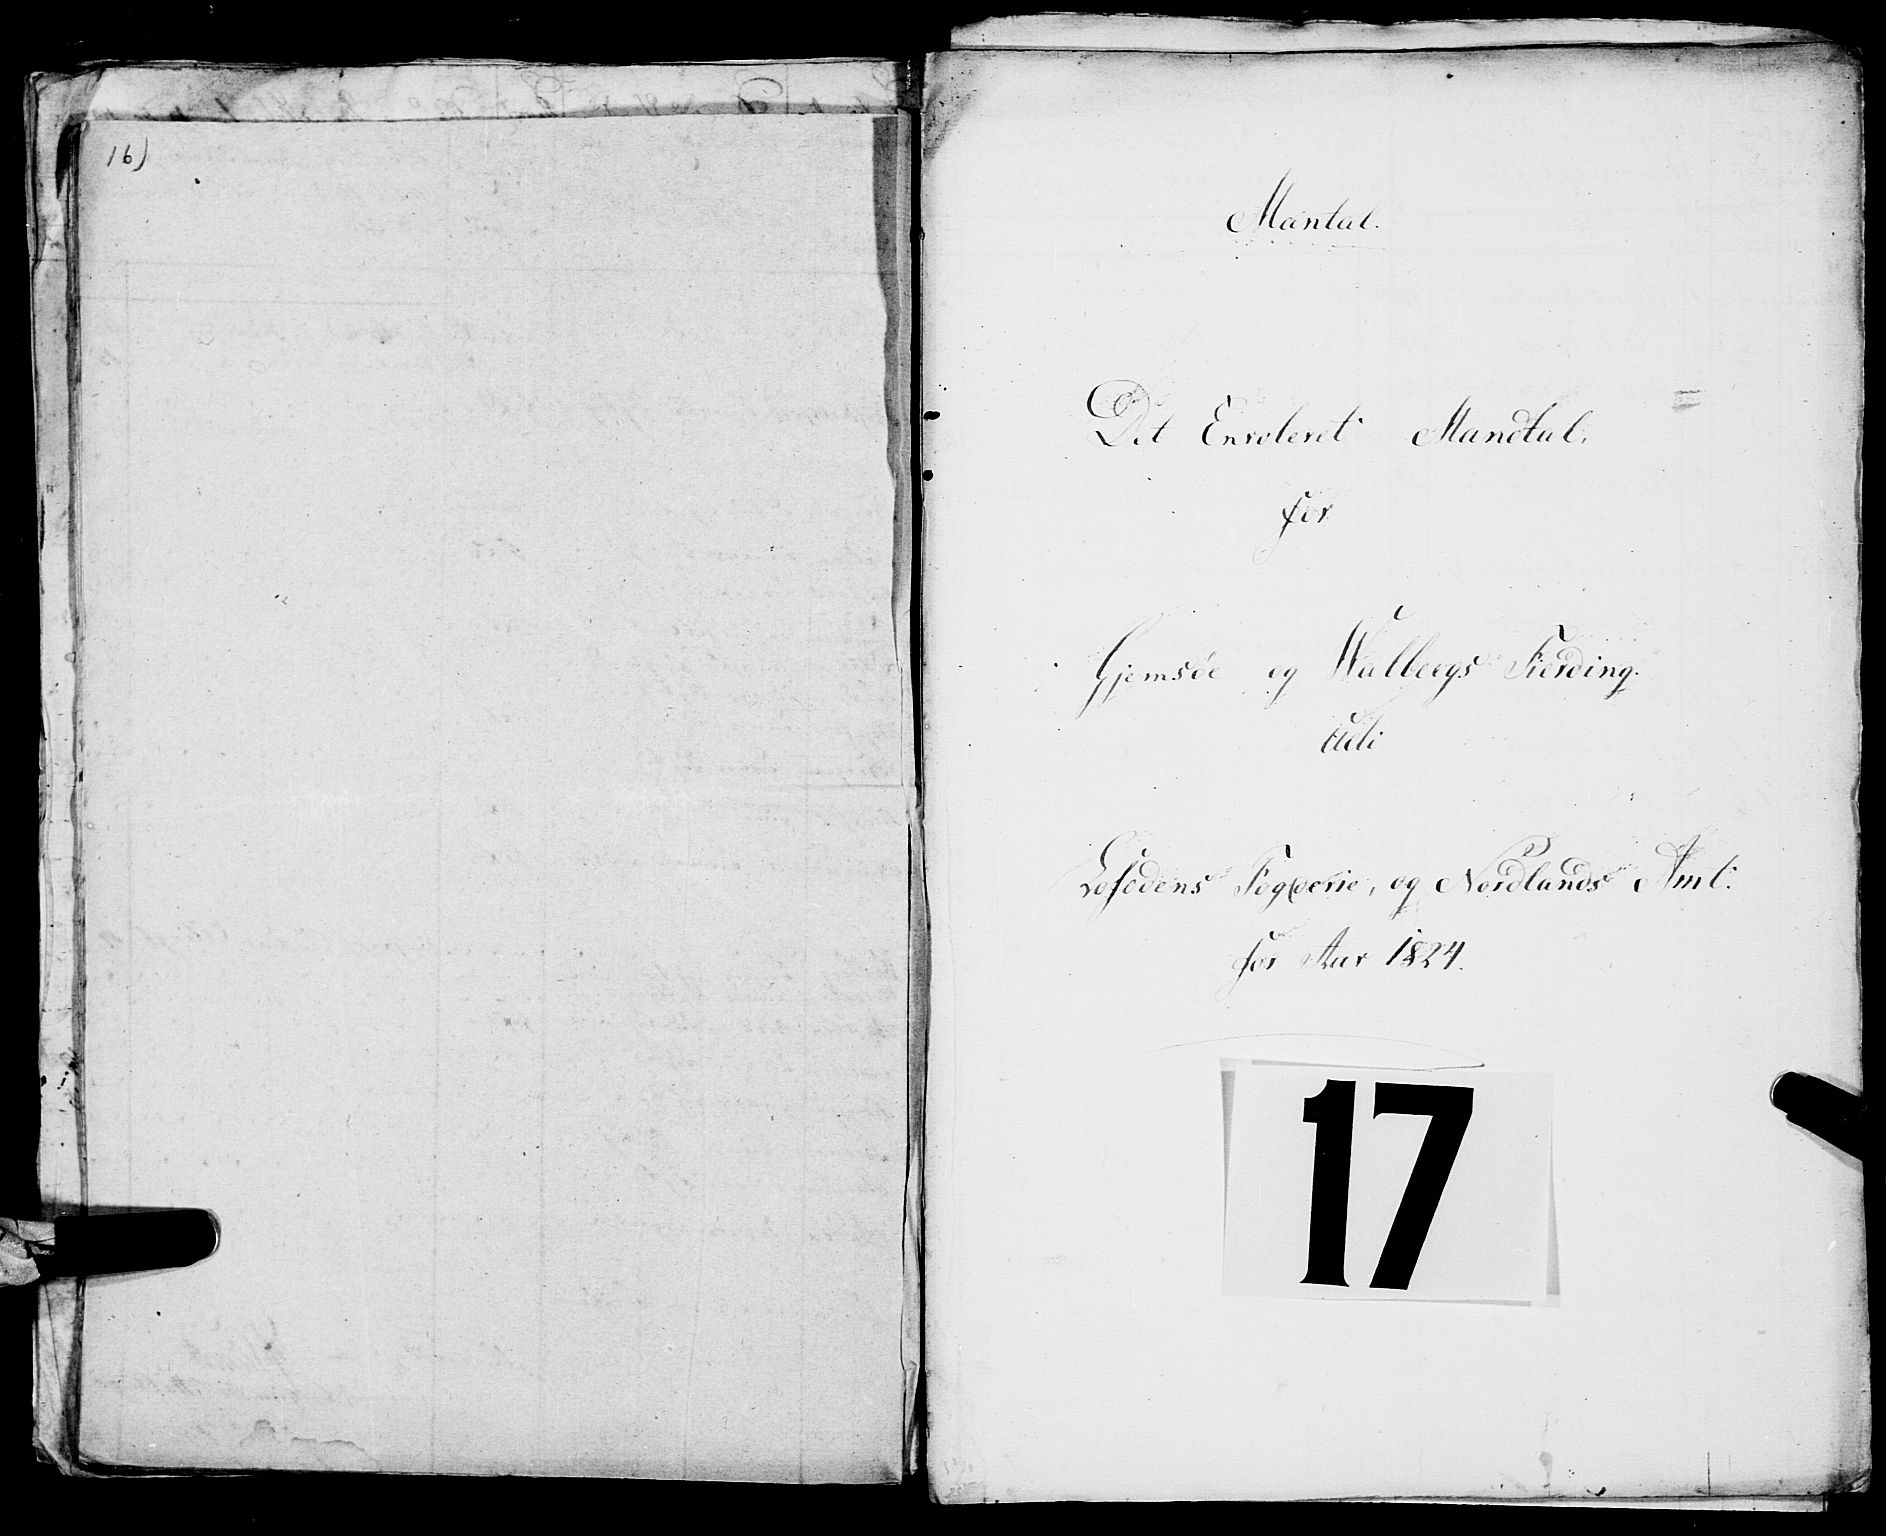 16)
Mantal.
Det Enroleret Mandtal.
for
Gjemsöe og Walbergs Fierding.
Udi
Lofodens Fogderie, og Nordlands Amt.
for Aar 1824.
17